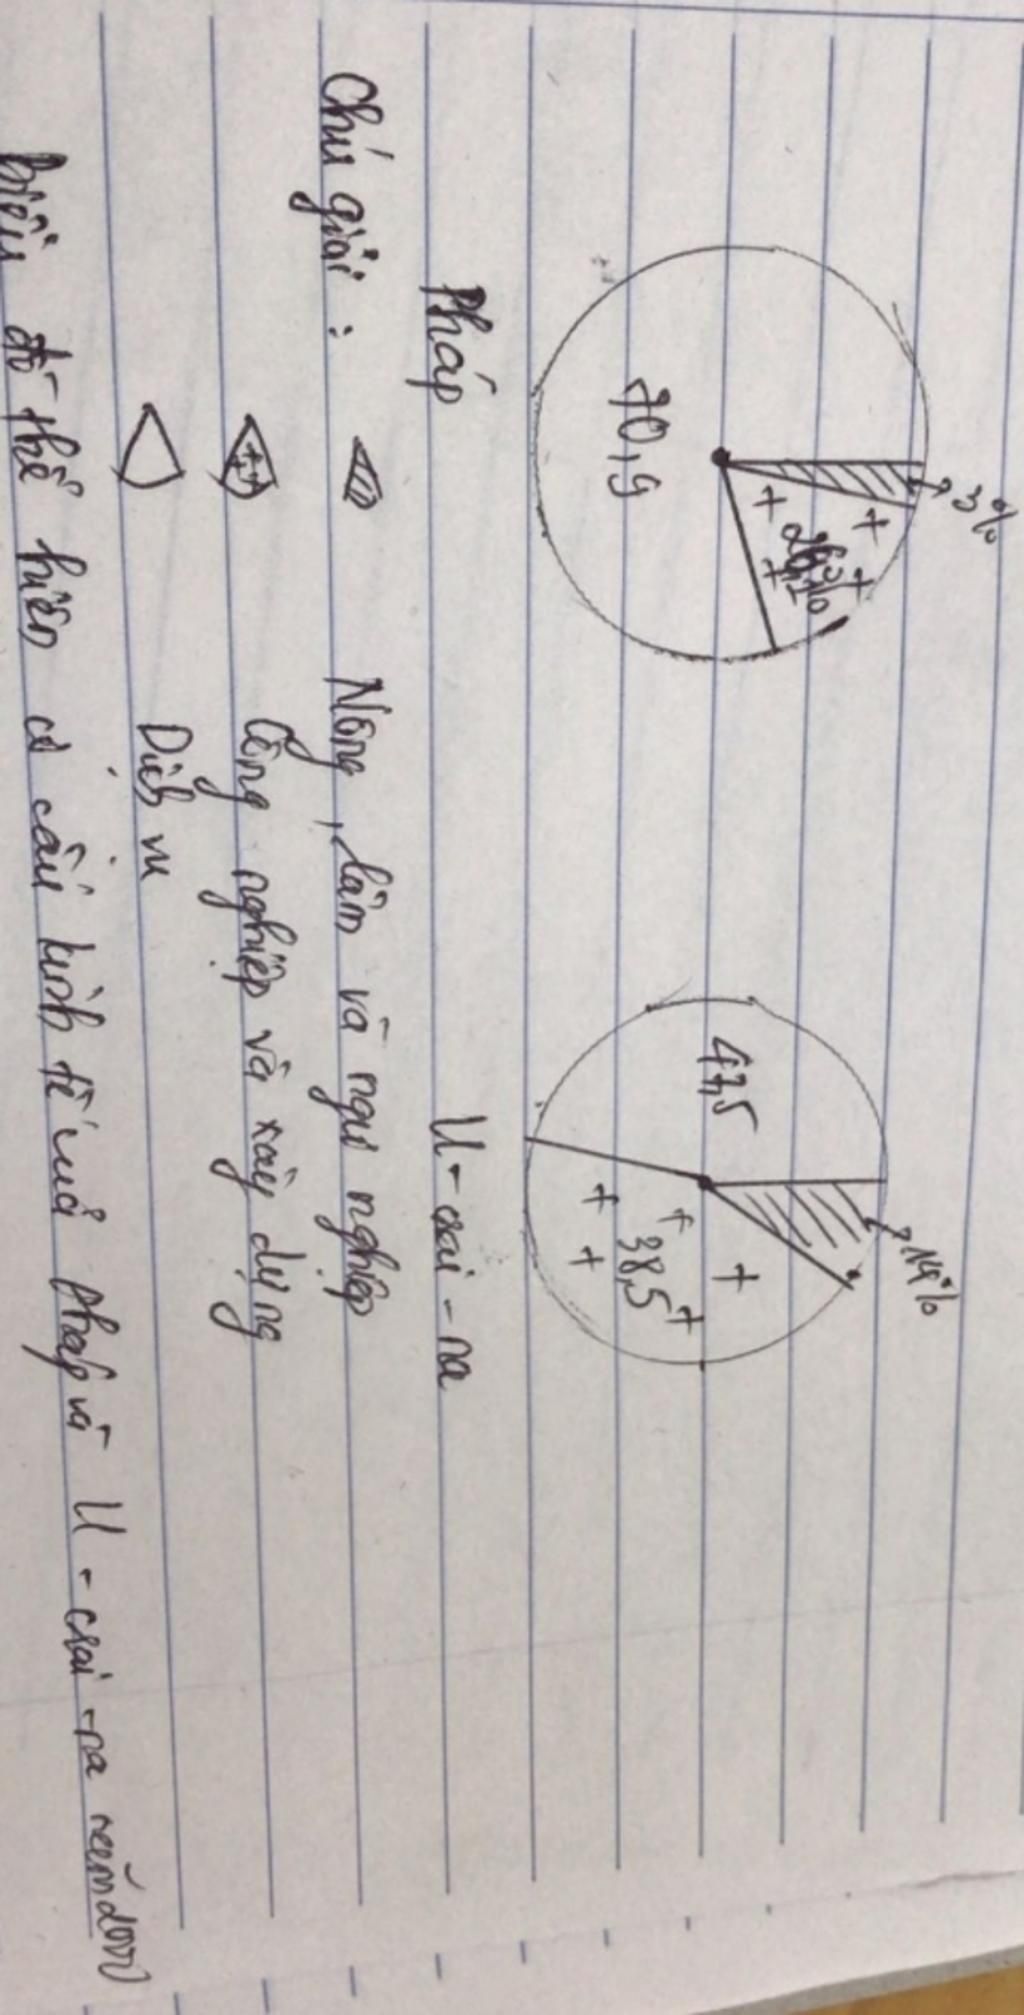 3%
26,1%
70,9
14%
38,5
47,5
Pháp
U-crai-na
Chú giải :
Nông, lâm và ngư nghiệp
Công nghiệp và xây dựng
Dịch vụ
biểu đồ thể hiện cơ cấu kinh tế của Pháp và U-crai-na năm 2000